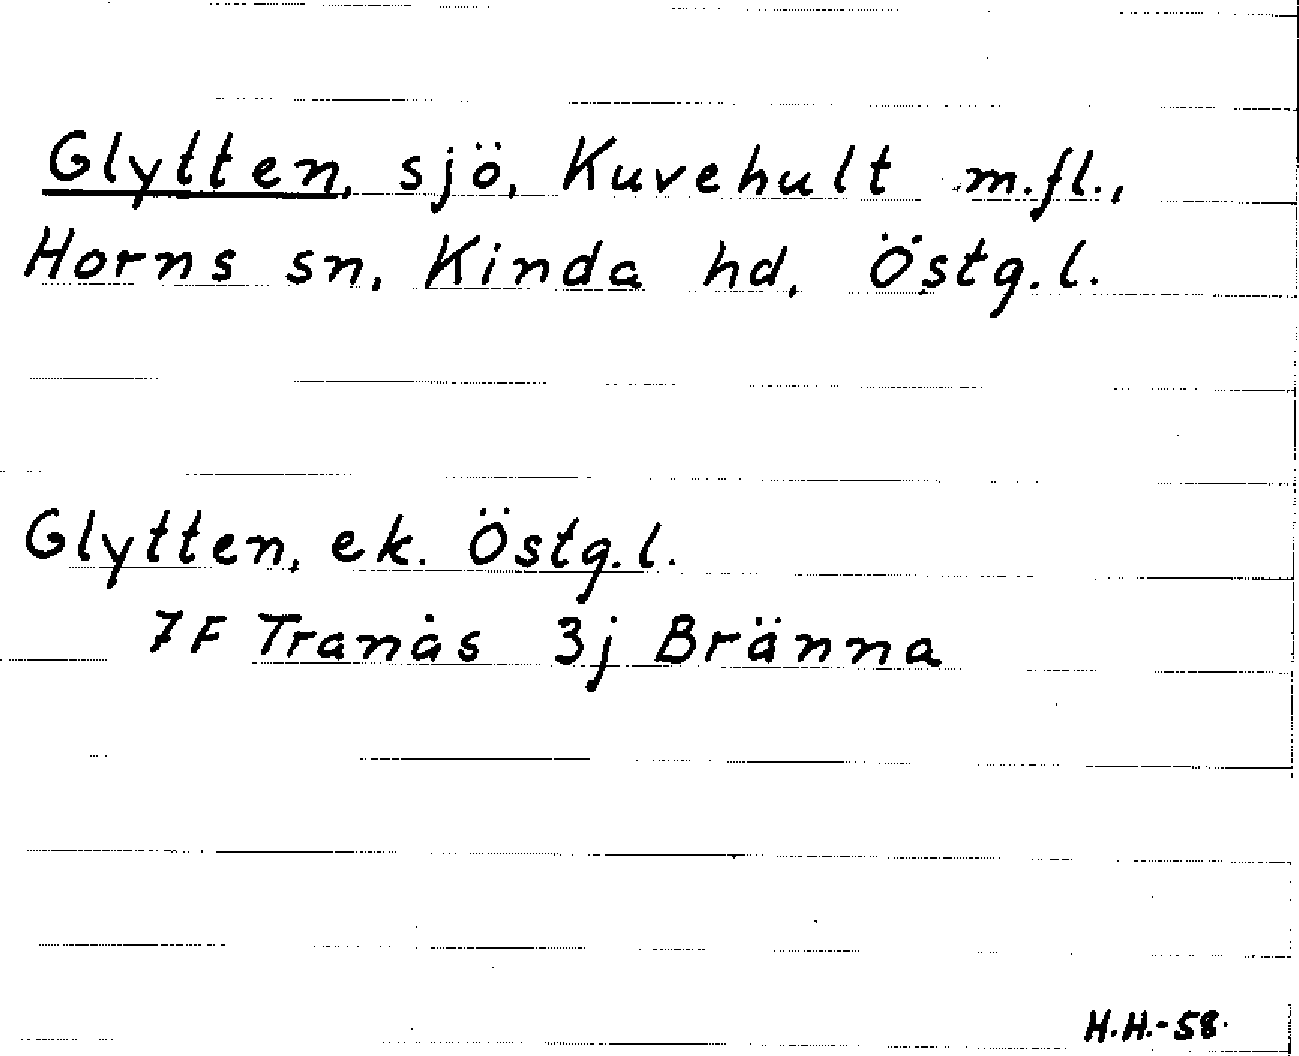 Glytten, sjö, Kuvehult m.fl.,
Horns sn, Kinda hd, Östg.l.
Glytten, ek. Östg.l.
7F Tranås 3j Bränna
H.H.-58.